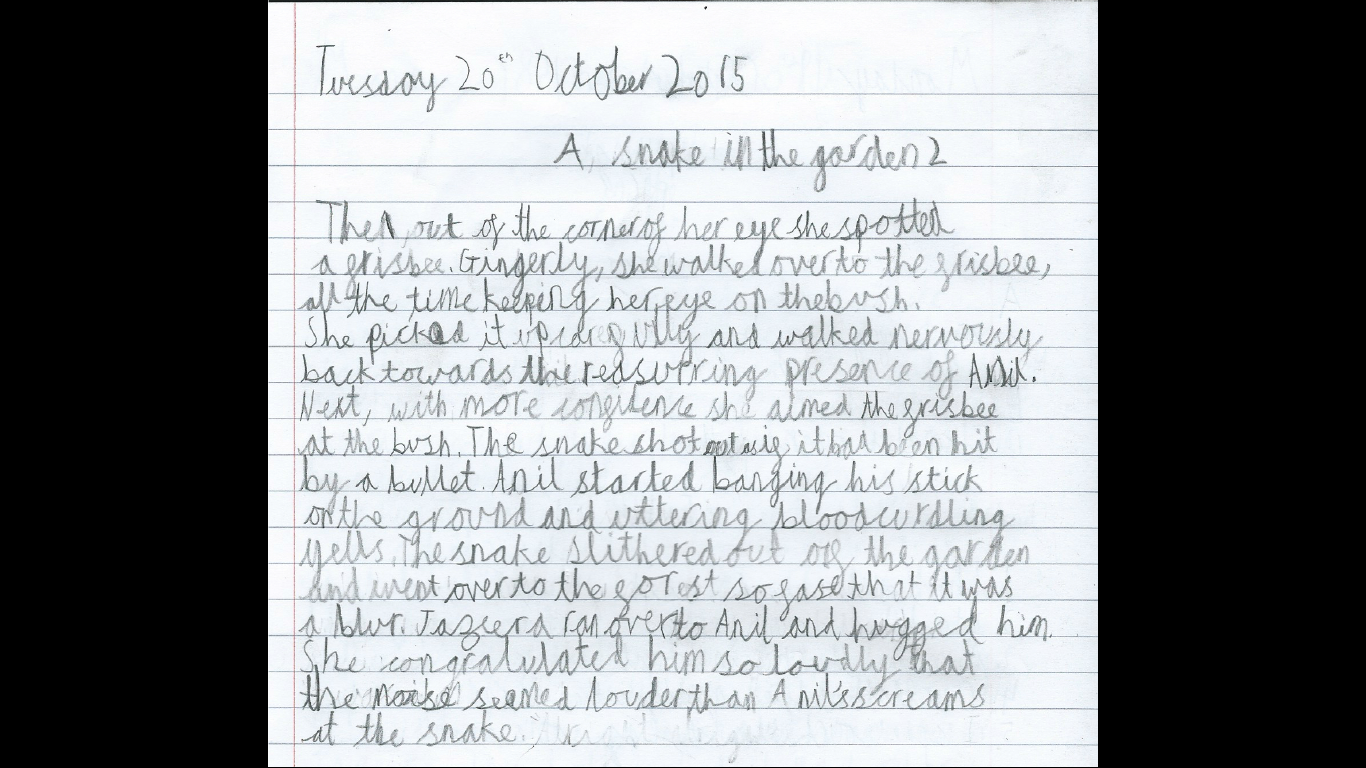 Tuesday 20th October 2015
A snake in the garden 2
Then, out of the corner of her eye she spotted
a frisbee. Gingerly, she walked over to the frisbee,
all the time keeping her eye on the bush.
She picked it up carefully and walked nervously
back towards the reasurring presence of Anil.
Next, with more confitence she aimed the frisbee
at the bush. The snake shot out as if it had been hit
by a bullet. Anil started banging his stick
on the ground and uttering bloodcurdling
yells. The snake slithered out of the garden
and went over to the forest so fast that it was
a blur. Jazeera ran over to Anil and hugged him.
She congratulated him so loudly that
the noise seemed louder than Anil's screams
at the snake.